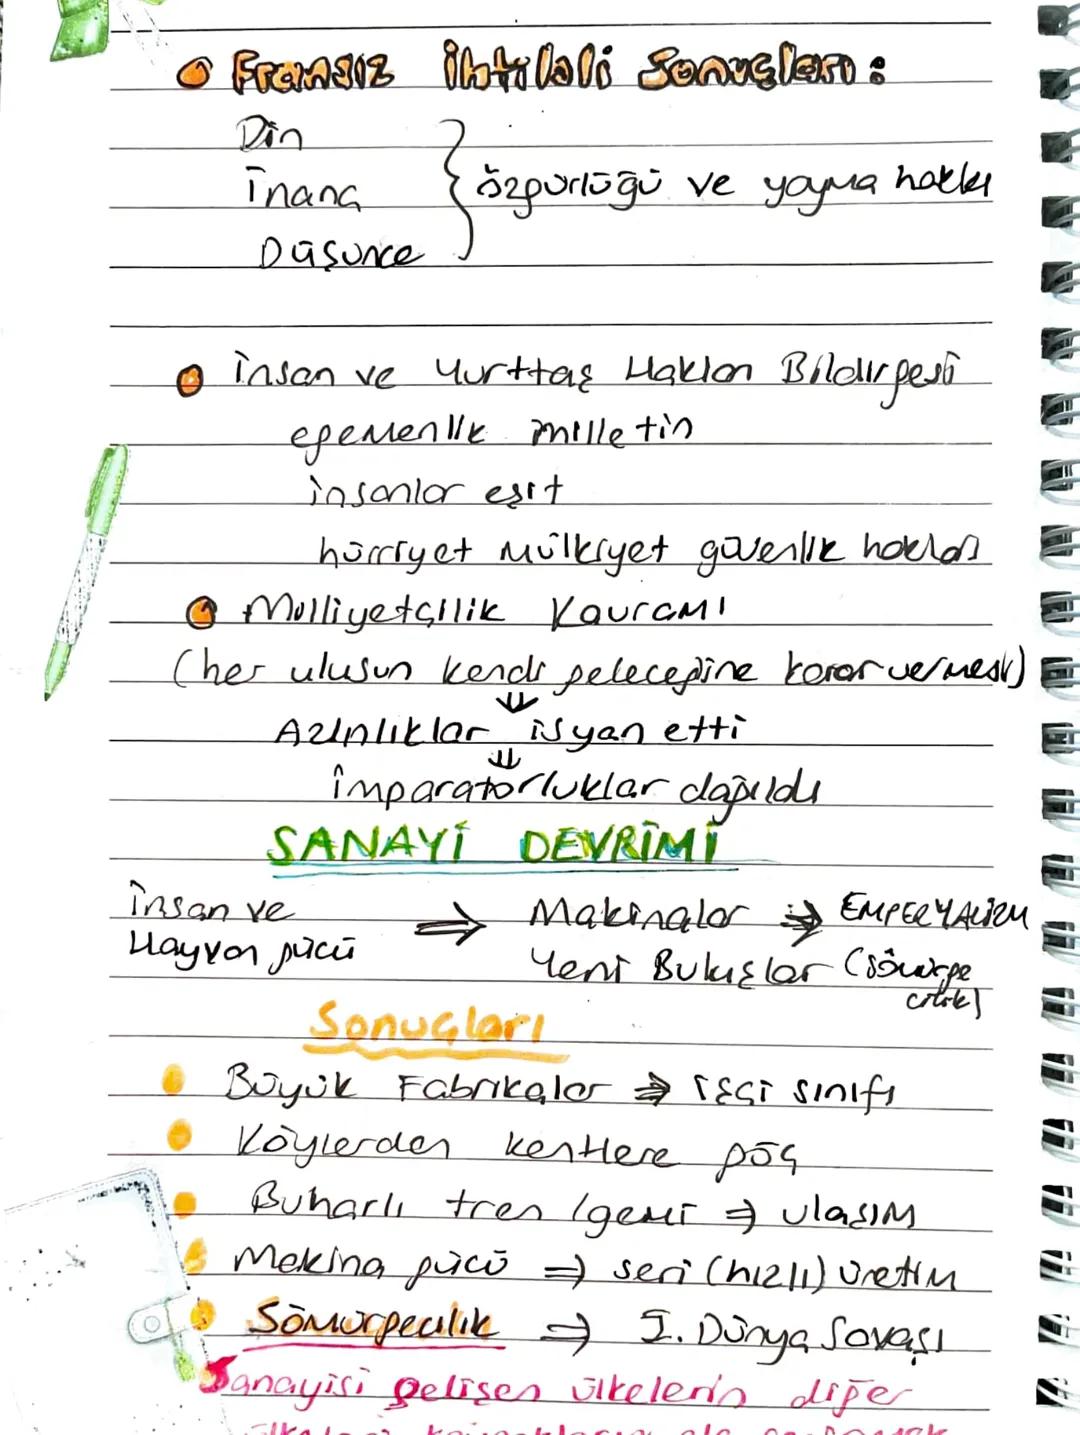 Fransız ihtilali Sonuçları:
Din
İnanç
Düşünce
özgürlüğü ve yayma hakkı
İnsan ve Yurttaş Hakları Bildirgesi
egemenlik milletin
insanlar eşit
hürriyet mülkiyet güvenlik hakları
Milliyetçilik Kavramı
(her ulusun kendi geleceğine karar vermesi)
⇓
Azınlıklar isyan etti
⇓
İmparatorluklar dağıldı
SANAYİ DEVRİMİ
İnsan ve
Hayvan gücü
⇒ Makinalar ⇒ EMPERYALİZM
Yeni Buluşlar (sömürge
cilik)
Sonuçları
Büyük Fabrikalar ⇒ işçi sınıfı
Köylerden kentlere göç
Buharlı tren /gemi ⇒ ulaşım
Makina gücü ⇒ seri (hızlı) üretim
Sömürgecilik ⇒ I. Dünya Savaşı
Sanayisi gelişen ülkelerin diğer